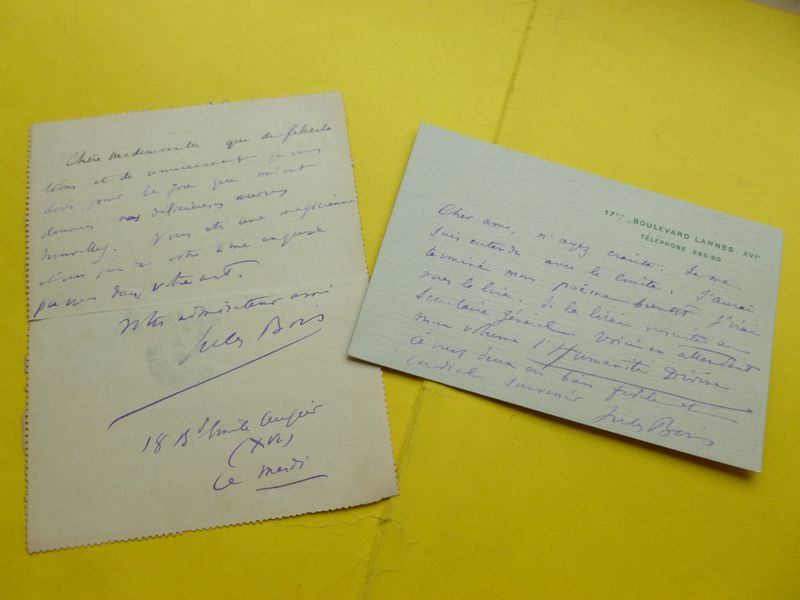 Chère Mademoiselle que de félicita
tions et de remerciements je vous
dois pour la joie que m'ont
données vos délicieuses œuvres
nouvelles. Vous êtes une magicienne
et un peu de votre âme exquise
passe dans votre art.
Votre admirateur ami
Jules Bois
18 Bd Emile Augier
(XVI)
Ce mardi
17bis, BOULEVARD LANNES XVIe
TÉLÉPHONE 685-80
Cher ami, n'ayez crainte. Je me
suis entendu avec le comité. J'aurai
terminé mon poème bientôt. J'irai
vous le lire. Je le lirai ensuite au
Secrétaire général. Voici en attendant
mon volume l'Humanité Divine
à vous deux en bien fidèle et
cordial souvenir Jules Bois